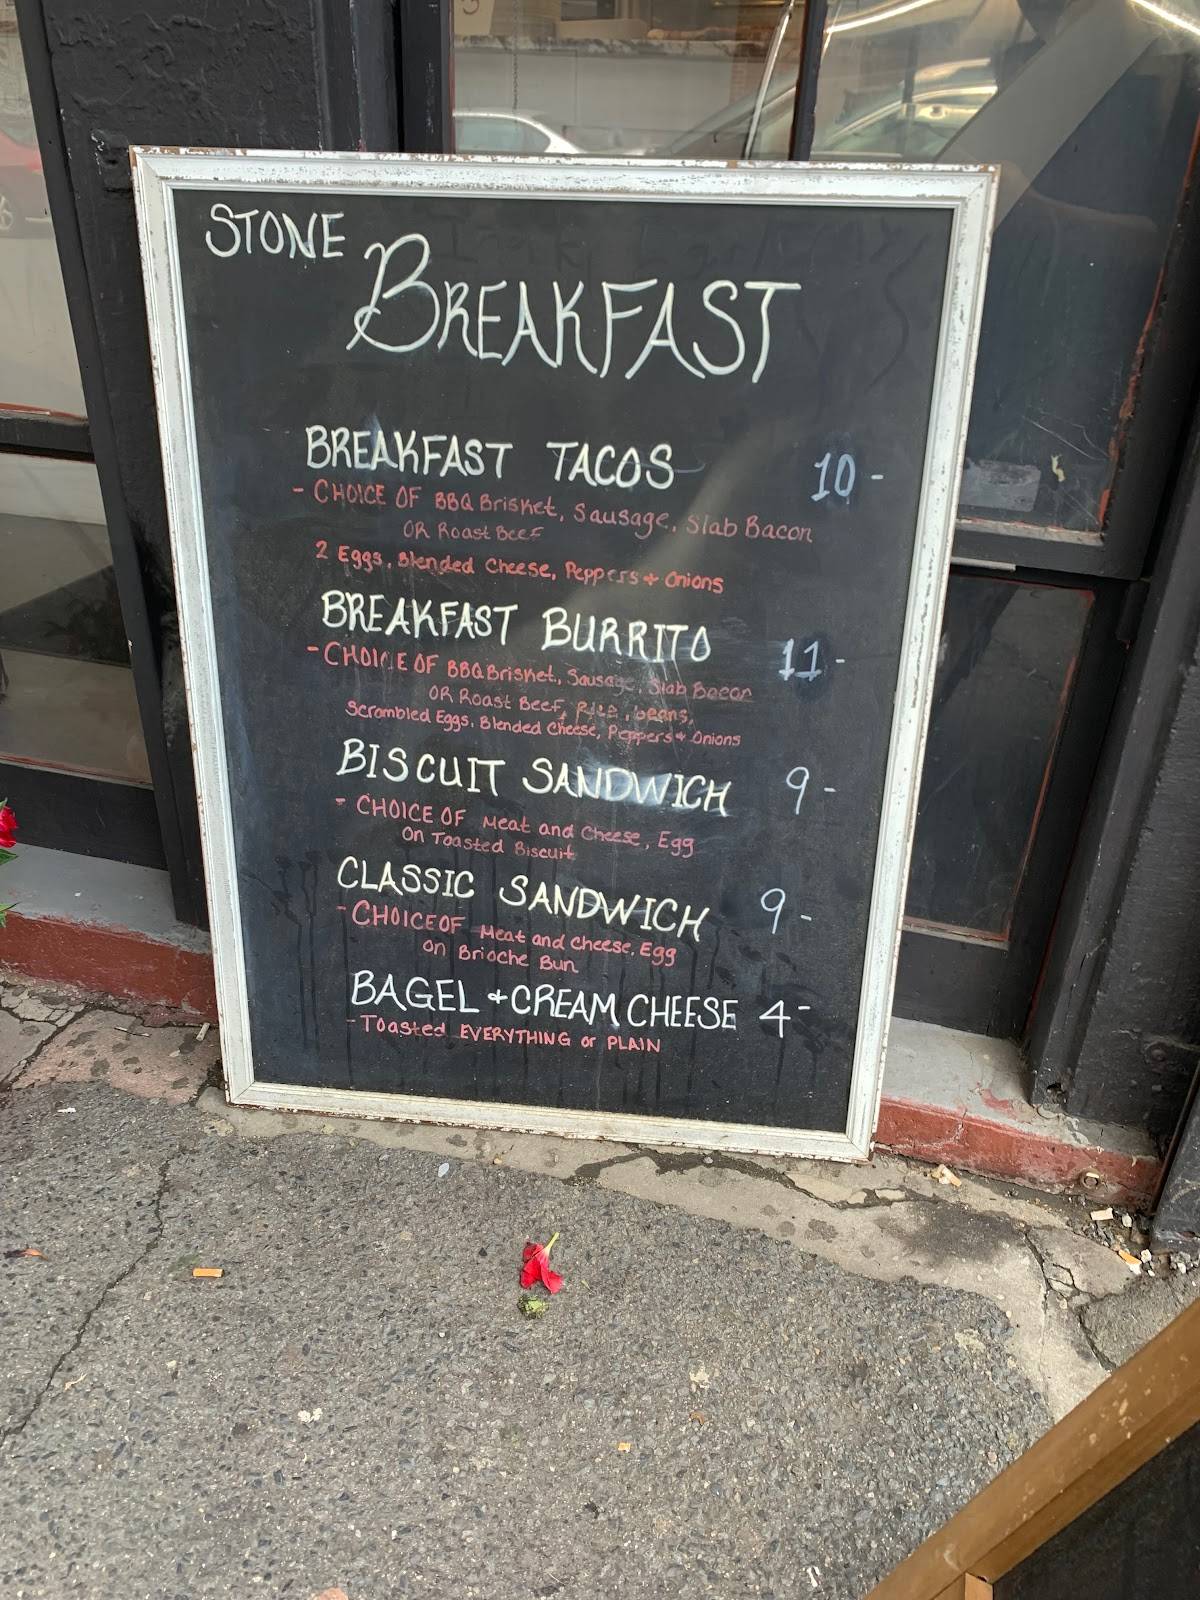 STONE
BREAKFAST
BREAKFAST TACOS 10-
- CHOICE OF BBQ Brisket, Sausage, Slab Bacon
OR Roast Beef
2 Eggs, Blended Cheese, Peppers + Onions
BREAKFAST BURRITO 11-
- CHOICE OF BBQ Brisket, Sausage, Slab Bacon
OR Roast Beef, Rice, beans,
Scrambled Eggs, Blended Cheese, Peppers + Onions
BISCUIT SANDWICH 9-
- CHOICE OF Meat and Cheese, Egg
On Toasted Biscuit
CLASSIC SANDWICH 9-
- CHOICE OF Meat and Cheese, Egg
on Brioche Bun
BAGEL + CREAM CHEESE 4-
- Toasted EVERYTHING or PLAIN